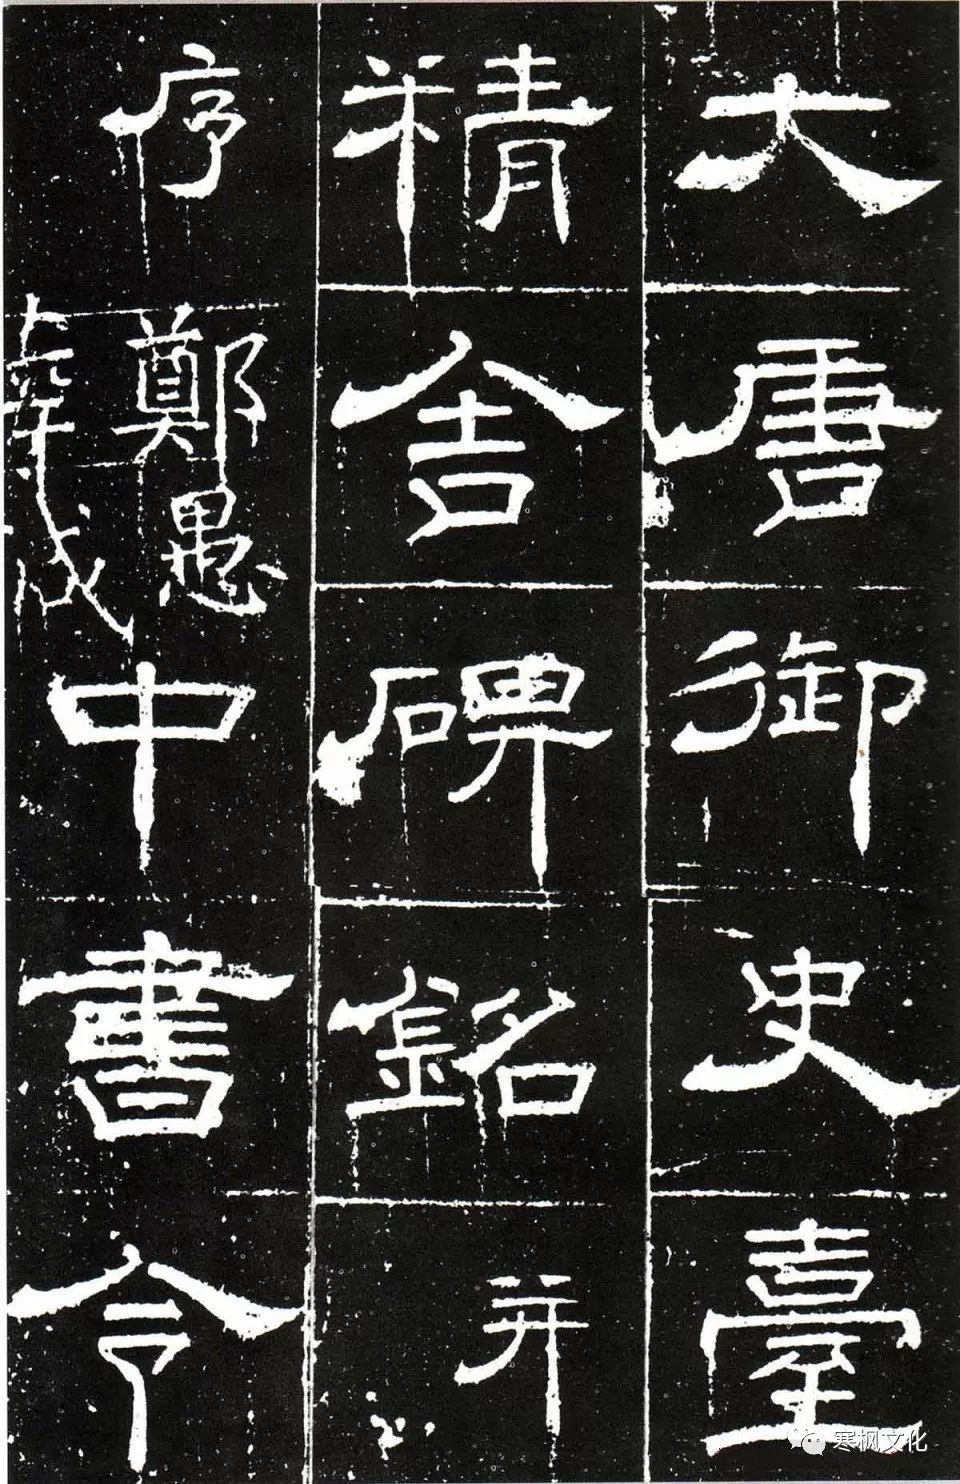 大唐御史臺
精舍碑銘并
序鄭愚中書令
寒枫文化